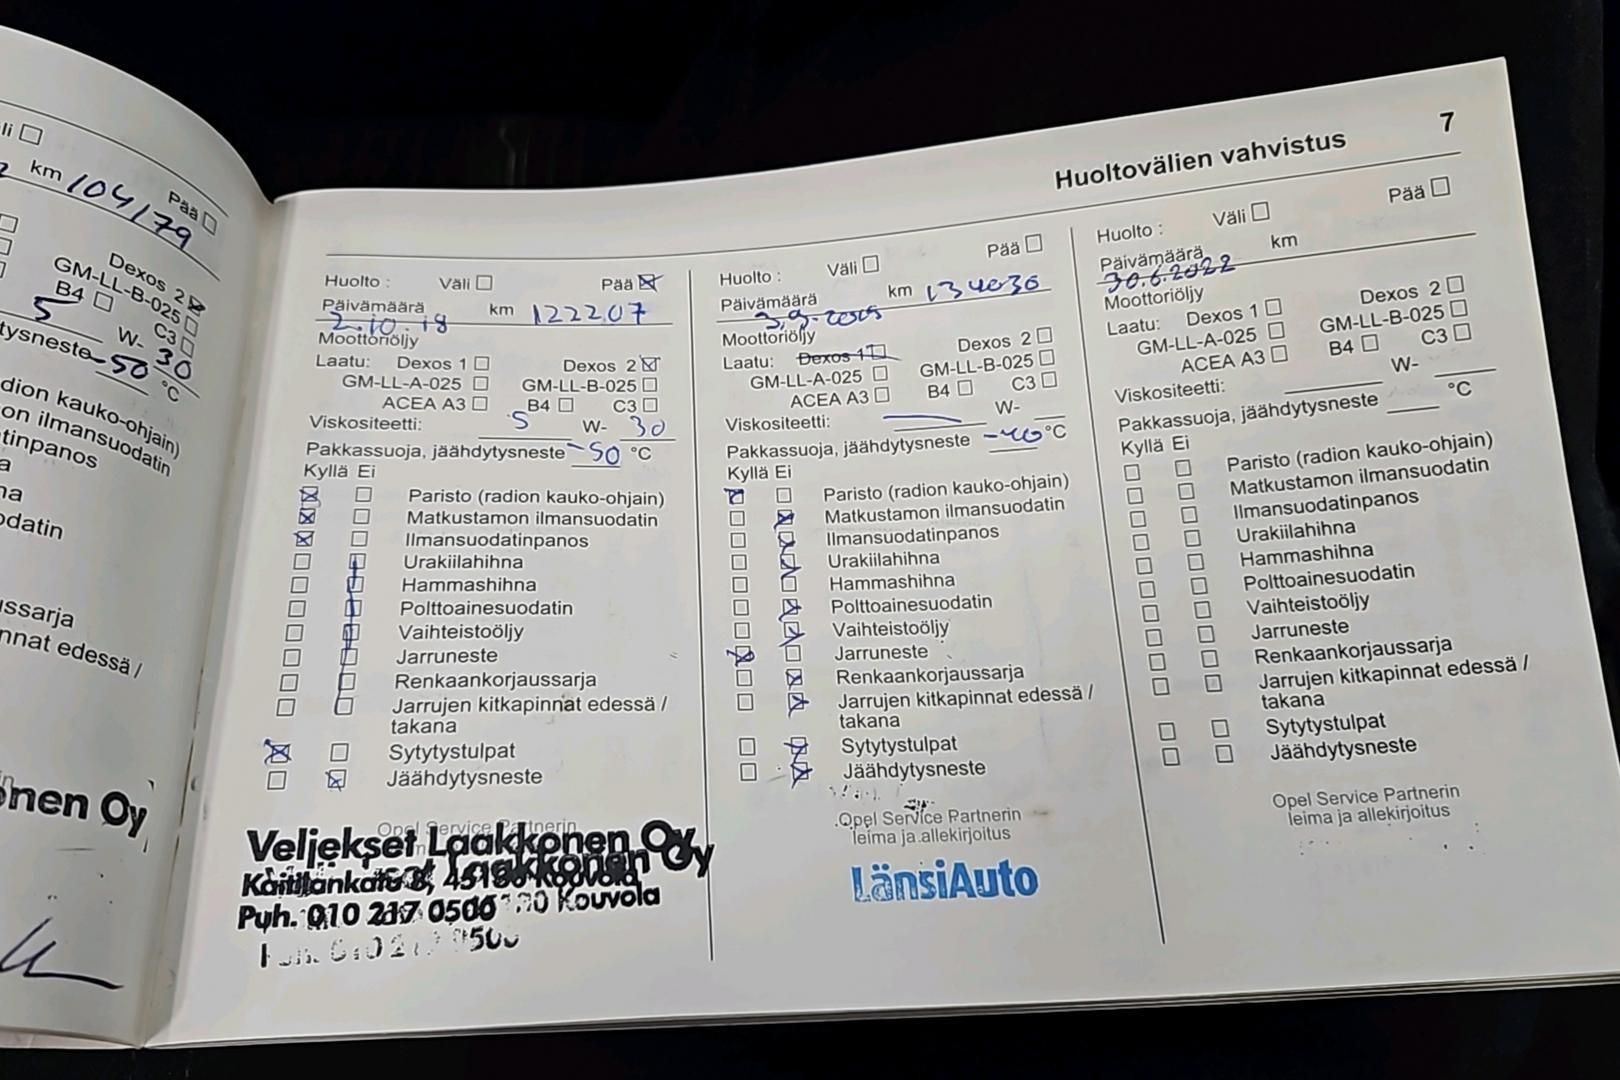 li
Pää
km 104179
Dexos 2
GM-LL-B-025
B4 C3
5 W- 30
-50 °C
Huoltovälien vahvistus 7
Huolto : Väli Pää
Päivämäärä km 122207
2.10.18
Moottoriöljy
Laatu: Dexos 1 Dexos 2
GM-LL-A-025 GM-LL-B-025
ACEA A3 B4 C3
Viskositeetti: 5 W- 30
Pakkassuoja, jäähdytysneste -50 °C
Kyllä Ei
Paristo (radion kauko-ohjain)
Matkustamon ilmansuodatin
Ilmansuodatinpanos
Urakiilahihna
Hammashihna
Polttoainesuodatin
Vaihteistoöljy
Jarruneste
Renkaankorjaussarja
Jarrujen kitkapinnat edessä /
takana
Sytytystulpat
Jäähdytysneste
Opel Service Partnerin
Veljekset Laakkonen Oy
Puh. 010 217 0500
Kouvola
Huolto : Väli Pää
Päivämäärä km 134036
Moottoriöljy
Laatu: Dexos 1 Dexos 2
GM-LL-A-025 GM-LL-B-025
ACEA A3 B4 C3
Viskositeetti: W-
Pakkassuoja, jäähdytysneste -40 °C
Kyllä Ei
Paristo (radion kauko-ohjain)
Matkustamon ilmansuodatin
Ilmansuodatinpanos
Urakiilahihna
Hammashihna
Polttoainesuodatin
Vaihteistoöljy
Jarruneste
Renkaankorjaussarja
Jarrujen kitkapinnat edessä /
takana
Sytytystulpat
Jäähdytysneste
Opel Service Partnerin
leima ja allekirjoitus
LänsiAuto
Huolto : Väli Pää
Päivämäärä km
30.6.2022
Moottoriöljy
Laatu: Dexos 1 Dexos 2
GM-LL-A-025 GM-LL-B-025
ACEA A3 B4 C3
Viskositeetti: W-
Pakkassuoja, jäähdytysneste °C
Kyllä Ei
Paristo (radion kauko-ohjain)
Matkustamon ilmansuodatin
Ilmansuodatinpanos
Urakiilahihna
Hammashihna
Polttoainesuodatin
Vaihteistoöljy
Jarruneste
Renkaankorjaussarja
Jarrujen kitkapinnat edessä /
takana
Sytytystulpat
Jäähdytysneste
Opel Service Partnerin
leima ja allekirjoitus